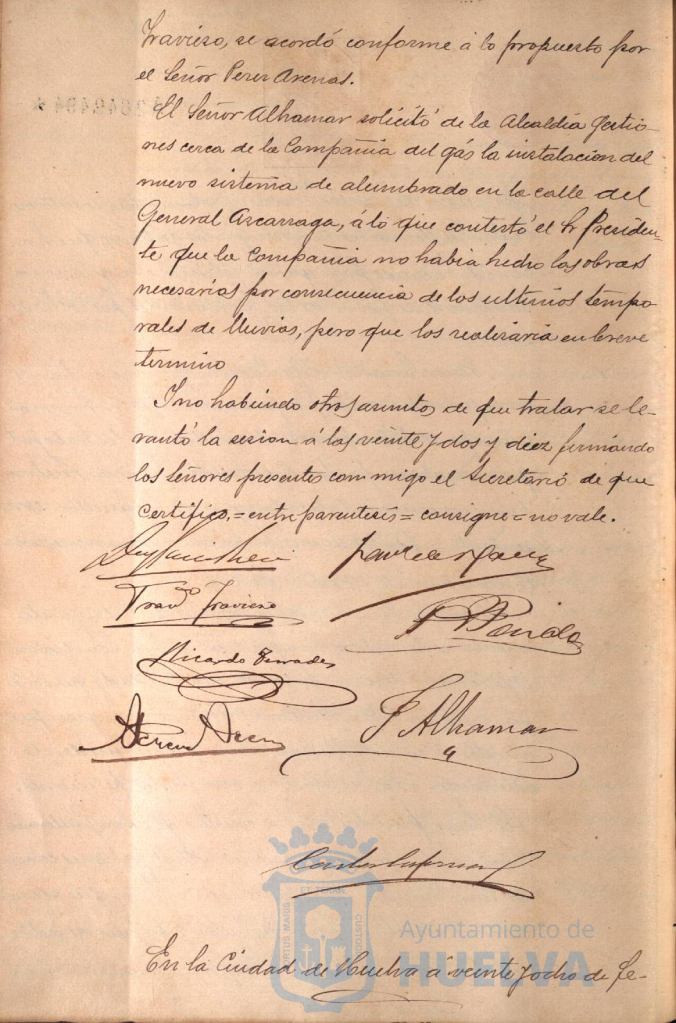 Travieso, se acordó conforme á lo propuesto por
el Señor Perez Arenas.
El Señor Alhamar solicitó de la Alcaldia gestio-
nes cerca de la Compañia del gás la instalacion del
nuevo sistema de alumbrado en la calle del
General Azcarraga, á lo que contestó el Sr Presiden-
te que la Compañia no habia hecho las obras
necesarias por consecuencia de los ultimos tempo-
rales de lluvias, pero que los realizaria en breve
termino
I no habiendo otros asuntos de que tratar se le-
vantó la sesion á las veinte y dos y diez firmando
los Señores presentes conmigo el Secretario de que
certifico.=entre parentesis=consigne=no vale.
Franco Travieso
Ricardo Terrades
F Alhamar
VIRTUS MARIS
ET TERRAE
CUSTODIA
Ayuntamiento de
HUELVA
En la Ciudad de Huelva á veinte y ocho de Fe-